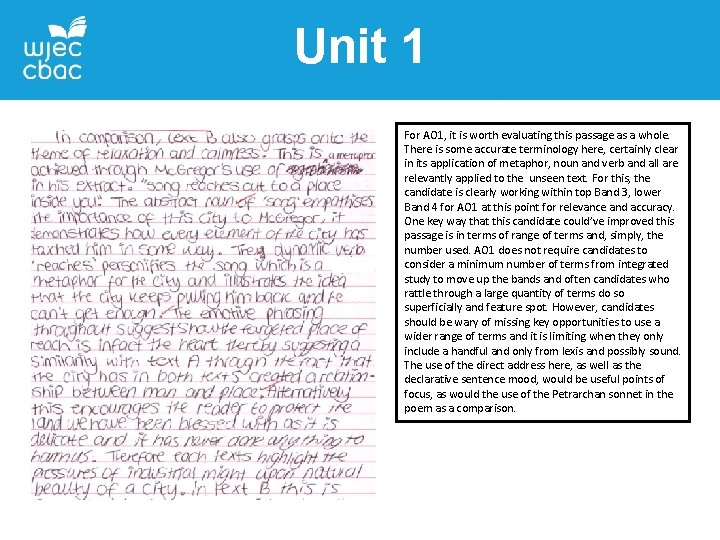 wjec
cbac
Unit 1
In comparison, text B also grasps onto the
theme of relaxation and calmness. This is
a metaphor
achieved through McGregor's use of
in his extract. "song reaches out to a place
inside you". The abstract noun of 'song' empathises
the importance of this city to McGregor, it
demonstrates how every element of the city has
touched him in some way. The dynamic verb
'reaches' personifies the song which is a
metaphor for the city and illustrates the idea
that the city keeps pulling him back and he
can't get enough. The emotive phrasing
throughout suggest show the targeted place of
reach is infact the heart thereby suggesting a
similarity with text A through the fact that
the city has in both texts created a relation-
ship between man and place. Alternatively
this encourages the reader to protect the
land we have been blessed with as it is
delicate and it has never done anything to
harm us. Therefore each texts highlight the
pressures of industrial might upon natural
beauty of a city. In text B this is
For AO1, it is worth evaluating this passage as a whole.
There is some accurate terminology here, certainly clear
in its application of metaphor, noun and verb and all are
relevantly applied to the unseen text. For this, the
candidate is clearly working within top Band 3, lower
Band 4 for AO1 at this point for relevance and accuracy.
One key way that this candidate could've improved this
passage is in terms of range of terms and, simply, the
number used. AO1 does not require candidates to
consider a minimum number of terms from integrated
study to move up the bands and often candidates who
rattle through a large quantity of terms do so
superficially and feature spot. However, candidates
should be wary of missing key opportunities to use a
wider range of terms and it is limiting when they only
include a handful and only from lexis and possibly sound.
The use of the direct address here, as well as the
declarative sentence mood, would be useful points of
focus, as would the use of the Petrarchan sonnet in the
poem as a comparison.